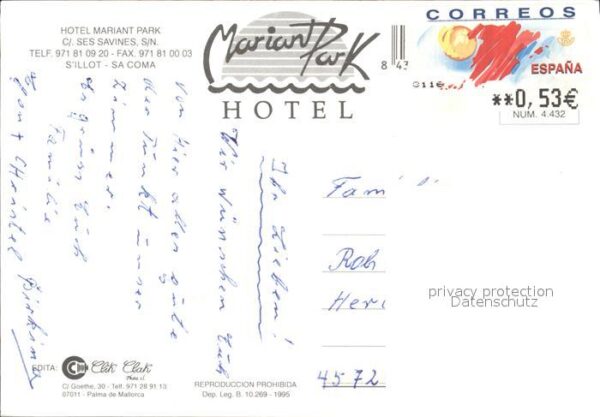 HOTEL MARIANT PARK
C/. SES SAVINES, S/N.
TELF. 971 81 09 20 - FAX. 971 81 00 03
S'ILLOT - SA COMA
Mariant Park
HOTEL
8 43
CORREOS
ESPAÑA
**0,53€
NUM. 4.432
Ihr Lieben!
Wir wünschen Euch
von hier alles Gute
der Punkt unser
Zimmer.
Es grüßen Euch
Familie
Christel
Fami
Rob
Her
4572
privacy protection
Datenschutz
EDITA:
Clik Clak
C/ Goethe, 30 - Telf. 971 28 91 13
07011 - Palma de Mallorca
REPRODUCCION PROHIBIDA
Dep. Leg. B. 10.269 - 1995